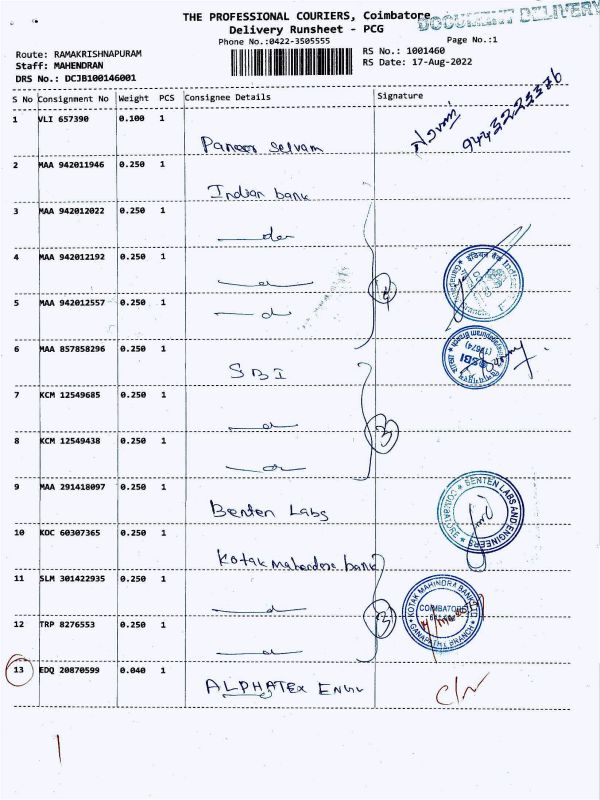 THE PROFESSIONAL COURIERS, Coimbatore
DOCUMENT DELIVERY
Delivery Runsheet - PCG
Phone No.:0422-3505555
Page No.:1
Route: RAMAKRISHNAPURAM
RS No.: 1001460
Staff: MAHENDRAN
RS Date: 17-Aug-2022
DRS No.: DCJB100146001
S No Consignment No Weight PCS Consignee Details Signature
1 VLI 657390 0.100 1
Paneer Selvam
2 MAA 942011946 0.250 1
Indian bank
3 MAA 942012022 0.250 1
do
4 MAA 942012192 0.250 1
d
5 MAA 942012557 0.250 1
d
4
6 MAA 857858296 0.250 1
SBI
7 KCM 12549685 0.250 1
d
3
8 KCM 12549438 0.250 1
d
9 MAA 291418097 0.250 1
Benten Labs
BENTEN LABS AND ENGINEERS
COIMBATORE
10 KOC 60307365 0.250 1
Kotak Mahendra bank
11 SLM 301422935 0.250 1
d
3
KOTAK MAHINDRA BANK LTD
COIMBATORE
GANAPATHI BRANCH
12 TRP 8276553 0.250 1
d
13 EDQ 20870599 0.040 1
ALPHATEX ENGG
C/N